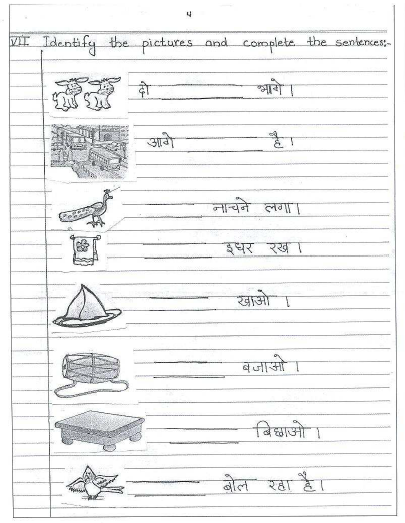 4
VII Identify the pictures and complete the sentences:-
दो ________ भागे।
आगे ________ है।
________ नाचने लगा।
________ इधर रख।
________ खाओ।
________ बजाओ।
________ बिछाओ।
________ बोल रहा है।